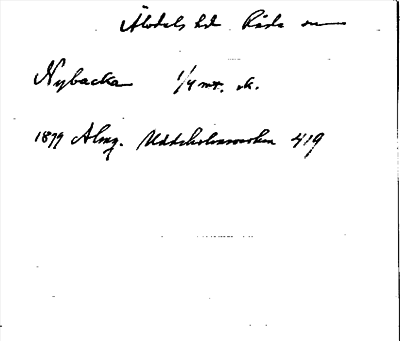 Älvdals hd Råda sn
Nybacka 1/4 mt. sk.
1879 Almg. Uddeholmsverken 419